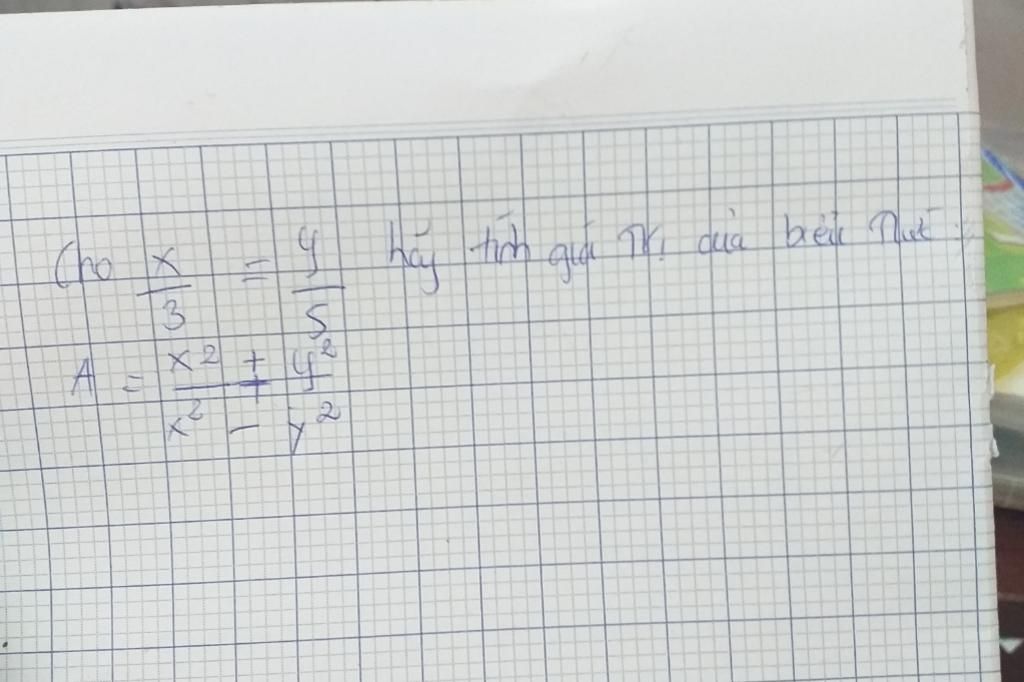 Cho x/3 = y/5 hãy tính giá trị của biểu thức:
A = (x² + y²)/(x² - y²)